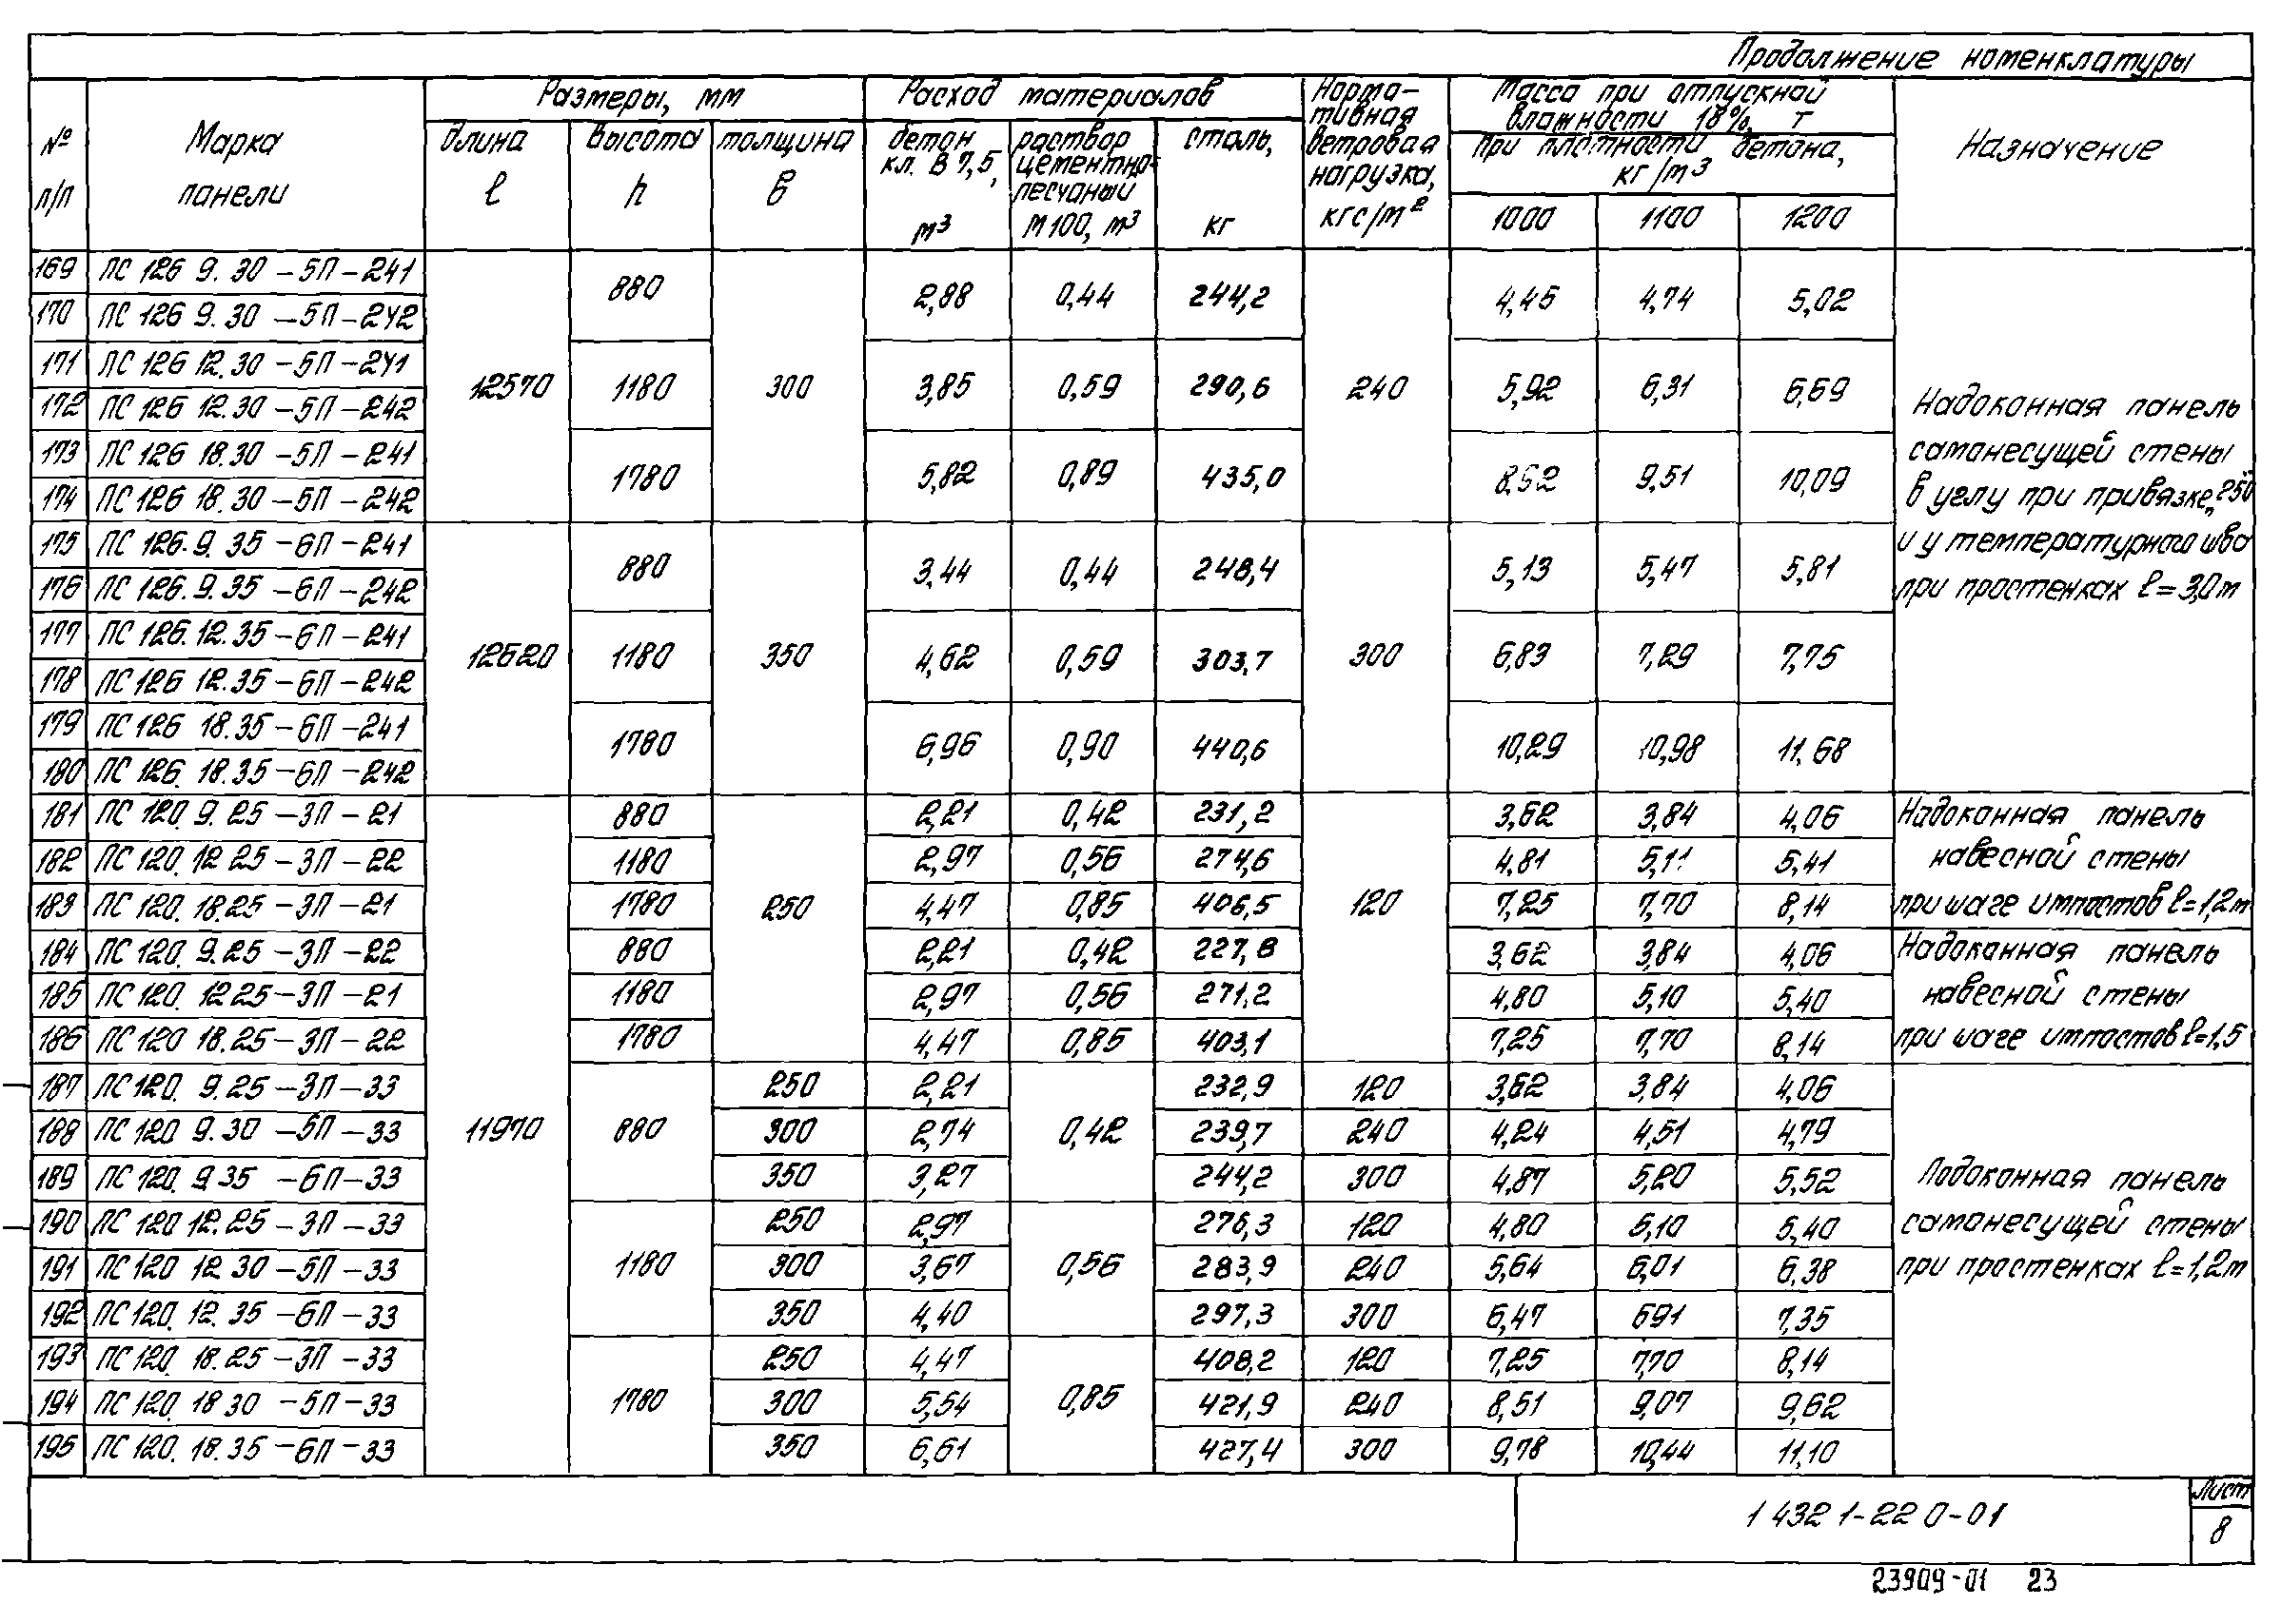 Продолжение номенклатуры
№ п/п | Марка панели | Размеры, мм | Расход материалов | Норма-тивная ветровая нагрузка, кгс/м² | Масса при отпускной влажности 18%, т | Назначение
длина ℓ | высота h | толщина в | бетон кл. В 7,5, м³ | раствор цементно-песчаный М 100, м³ | сталь, кг | при плотности бетона, кг/м³
1000 | 1100 | 1200
169 ПС 126 9. 30 -5П-241 | 12570 | 880 | 300 | 2,88 | 0,44 | 244,2 | 240 | 4,45 | 4,74 | 5,02
170 ПС 126 9. 30 -5П-242
171 ПС 126 12. 30 -5П-241 | 1180 | 3,85 | 0,59 | 290,6 | 5,92 | 6,31 | 6,69
172 ПС 126 12. 30 -5П-242
173 ПС 126 18.30 -5П-241 | 1780 | 5,82 | 0,89 | 435,0 | 9,51 | 10,09
174 ПС 126 18. 30 -5П-242
Надоконная панель
самонесущей стены
в углу при привязке „250"
и у температурного шва
при простенках ℓ=3,0 м
175 ПС 126. 9. 35 -6П-241 | 12620 | 880 | 350 | 3,44 | 0,44 | 248,4 | 300 | 5,13 | 5,47 | 5,81
176 ПС 126. 9. 35 -6П-242
177 ПС 126. 12. 35-6П-241 | 1180 | 4,62 | 0,59 | 303,7 | 6,83 | 7,29 | 7,75
178 ПС 126 12.35-6П-242
179 ПС 126 18.35-6П-241 | 1780 | 6,96 | 0,90 | 440,6 | 10,29 | 10,98 | 11,68
180 ПС 126. 18.35-6П-242
181 ПС 120. 9. 25-3П-21 | 11970 | 880 | 250 | 2,21 | 0,42 | 231,2 | 120 | 3,62 | 3,84 | 4,06
182 ПС 120. 12 25-3П-22 | 1180 | 2,97 | 0,56 | 274,6 | 4,81 | 5,11 | 5,41
183 ПС 120. 18.25-3П-21 | 1780 | 4,47 | 0,85 | 406,5 | 7,25 | 7,70 | 8,14
Надоконная панель
навесной стены
при шаге импостов ℓ=1,2м
184 ПС 120. 9.25-3П-22 | 880 | 2,21 | 0,42 | 227,8 | 3,62 | 3,84 | 4,06
185 ПС 120. 12 25-3П-21 | 1180 | 2,97 | 0,56 | 271,2 | 4,80 | 5,10 | 5,40
186 ПС 120 18.25-3П-22 | 1780 | 4,47 | 0,85 | 403,1 | 7,25 | 7,70 | 8,14
Надоконная панель
навесной стены
при шаге импостов ℓ=1,5
187 ПС 120. 9.25-3П-33 | 880 | 250 | 2,21 | 0,42 | 232,9 | 120 | 3,62 | 3,84 | 4,06
188 ПС 120 9.30 -5П-33 | 300 | 2,74 | 239,7 | 240 | 4,24 | 4,51 | 4,79
189 ПС 120. 9 35 -6П-33 | 350 | 3,27 | 244,2 | 300 | 4,87 | 5,20 | 5,52
190 ПС 120 12.25-3П-33 | 1180 | 250 | 2,97 | 0,56 | 276,3 | 120 | 4,80 | 5,10 | 5,40
191 ПС 120 12 30-5П-33 | 300 | 3,67 | 283,9 | 240 | 5,64 | 6,01 | 6,38
192 ПС 120. 12. 35-6П-33 | 350 | 4,40 | 297,3 | 300 | 6,47 | 691 | 7,35
193 ПС 120 18.25-3П-33 | 1780 | 250 | 4,47 | 0,85 | 408,2 | 120 | 7,25 | 7,70 | 8,14
194 ПС 120. 18 30 -5П-33 | 300 | 5,54 | 421,9 | 240 | 8,51 | 9,07 | 9,62
195 ПС 120. 18.35-6П-33 | 350 | 6,61 | 427,4 | 300 | 9,78 | 10,44 | 11,10
Подоконная панель
самонесущей стены
при простенках ℓ=1,2м
1 432 1-22 0-01
Лист
8
23909-01 23